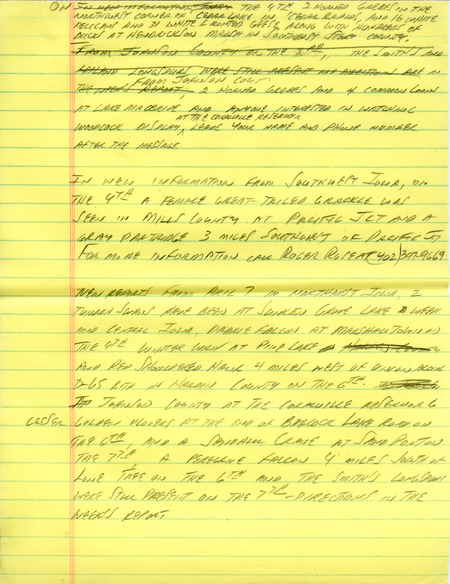 ON THE 4TH 2 HORNED GREBES IN THE
NORTHWEST CORNER OF CEDAR LAKE IN CEDAR RAPIDS, AND 16 WHITE
PELICANS AND 31 WHITE FRONTED GEESE ALONG WITH HUNDREDS OF
DUCKS AT HENDRICKSON MARSH IN SOUTHEAST STORY COUNTY.
FROM JOHNSON COUNTY ON THE 3RD, THE SMITH'S AND
LAPLAND LONGSPURS WERE STILL PRESENT ARE IN
FROM JOHNSON COUNTY
THE WEEK'S REPORT. 2 HORNED GREBES AND 4 COMMON LOONS
AT LAKE MACBRIDE AND ANYONE INTERESTED IN WATCHING
AT THE CORALVILLE RESERVOIR
WOODCOCK DISPLAY, LEAVE YOUR NAME AND PHONE NUMBER
AFTER THE MESSAGE
IN NEW INFORMATION FROM SOUTHWEST IOWA, ON
THE 4TH A FEMALE GREAT-TAILED GRACKLE WAS
SEEN IN MILLS COUNTY AT PACIFIC JCT AND A
GRAY PARTRIDGE 3 MILES SOUTHWEST OF PACIFIC JCT
FOR MORE INFORMATION CALL ROGER (402)
NEW REPORTS FROM APRIL 7 IN NORTHEAST IOWA, 2
TUNDRA SWANS HAVE BEEN AT SUNKEN GROVE LAKE WEEK
AND CENTRAL IOWA, PRAIRIE FALCON AT MARSHALLTOWN ON
THE 4TH WINTER WREN AT PINE LAKE
AND RED SHOULDERED HAWK 4 MILES WEST OF UNION NEAR
D-65 BTH IN HARDIN COUNTY ON THE 6TH.
IN JOHNSON COUNTY AT THE CORALVILLE RESERVOIR 6
LESSER GOLDEN PLOVERS AT THE END OF BABCOCK LANE ROAD ON
THE 6TH, AND A SANDHILL CRANE AT SAND POINT ON
THE 7TH. A PEREGRINE FALCON 4 MILES SOUTH OF
LONE TREE ON THE 6TH AND THE SMITH'S LONGSPURS
WERE STILL PRESENT ON THE 7TH - DIRECTIONS IN THE
WEEK'S REPORT